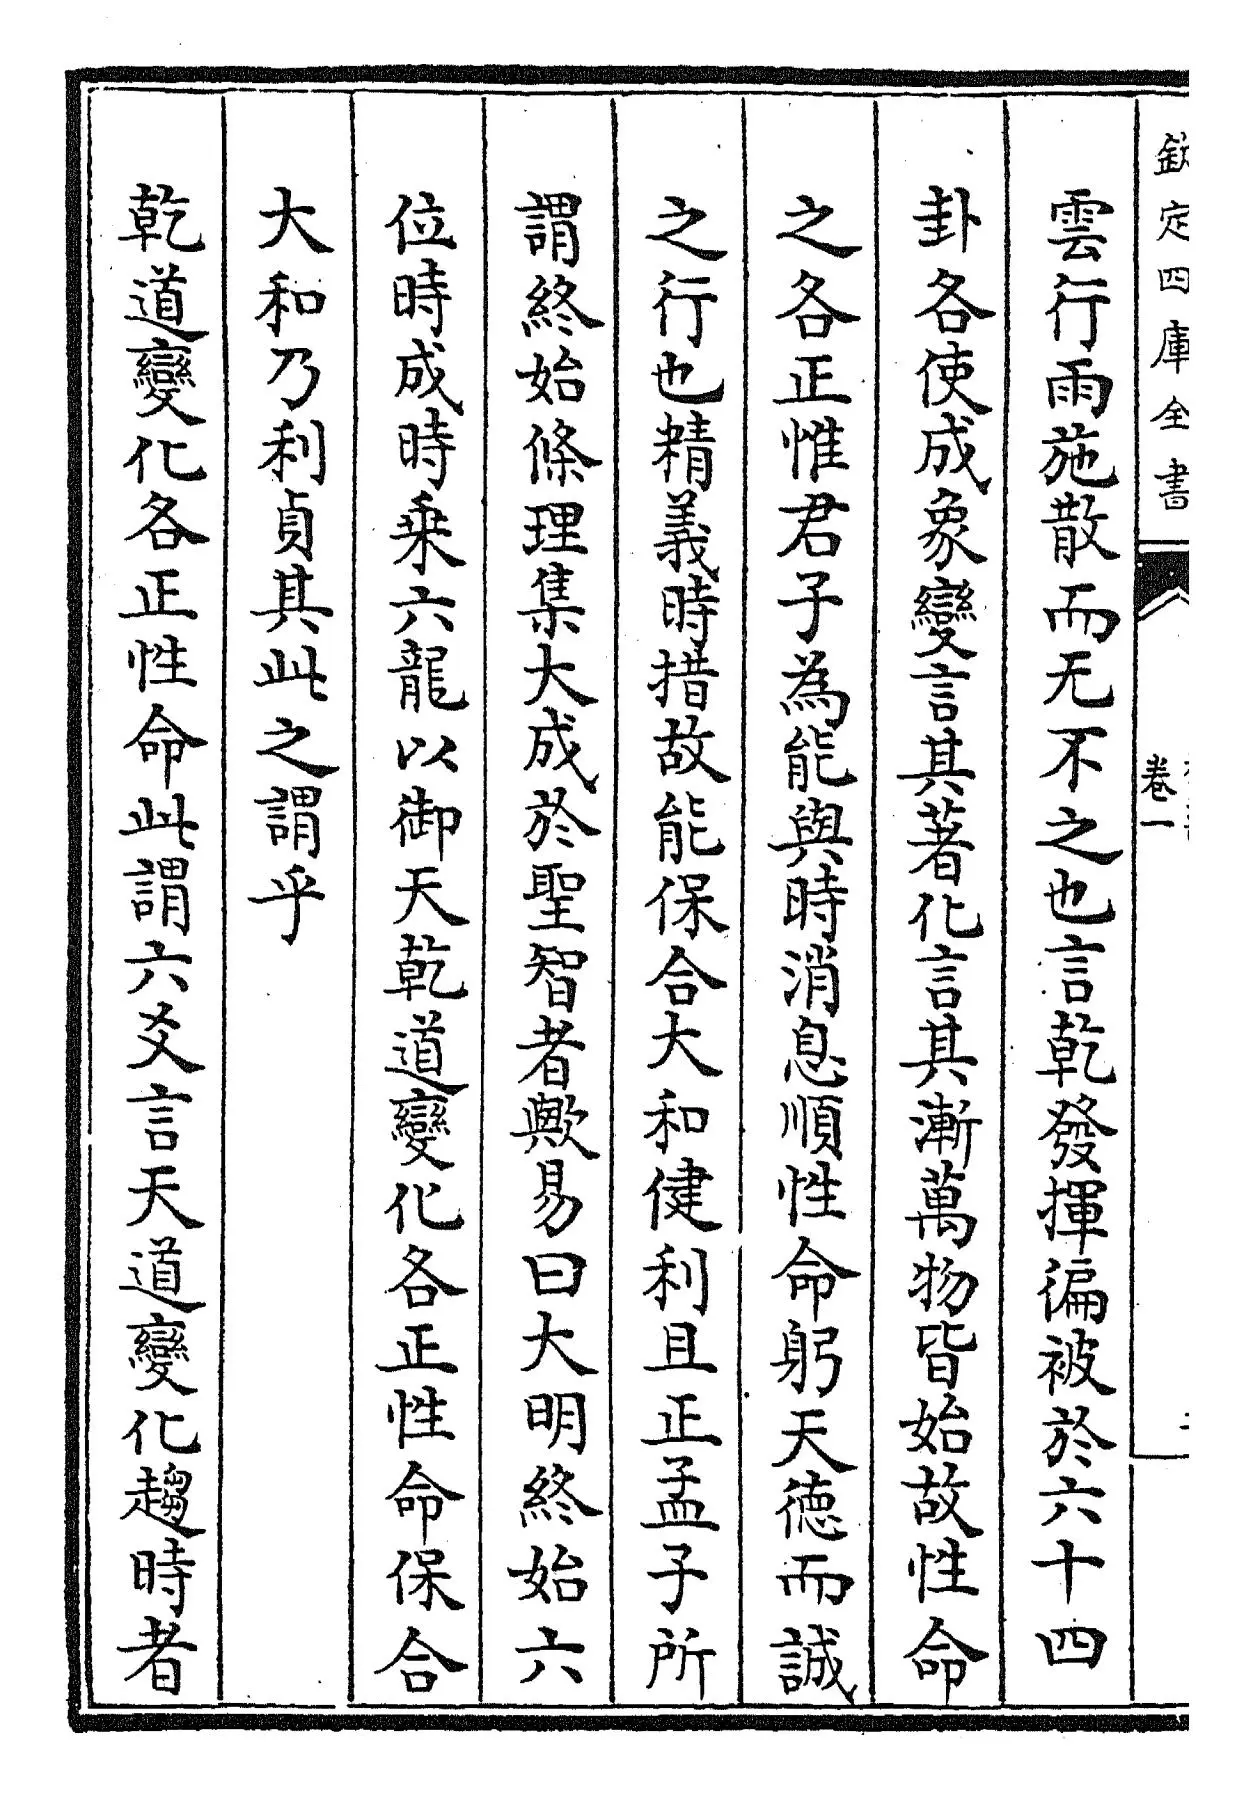 欽定四庫全書
卷一
雲行雨施散而无不之也言乾發揮徧被於六十四
卦各使成象變言其著化言其漸萬物皆始故性命
之各正惟君子為能與時消息順性命躬天德而誠
之行也精義時措故能保合大和健利且正孟子所
謂終始條理集大成於聖智者歟易曰大明終始六
位時成時乗六龍以御天乾道變化各正性命保合
大和乃利貞其此之謂乎
乾道變化各正性命此謂六爻言天道變化趨時者